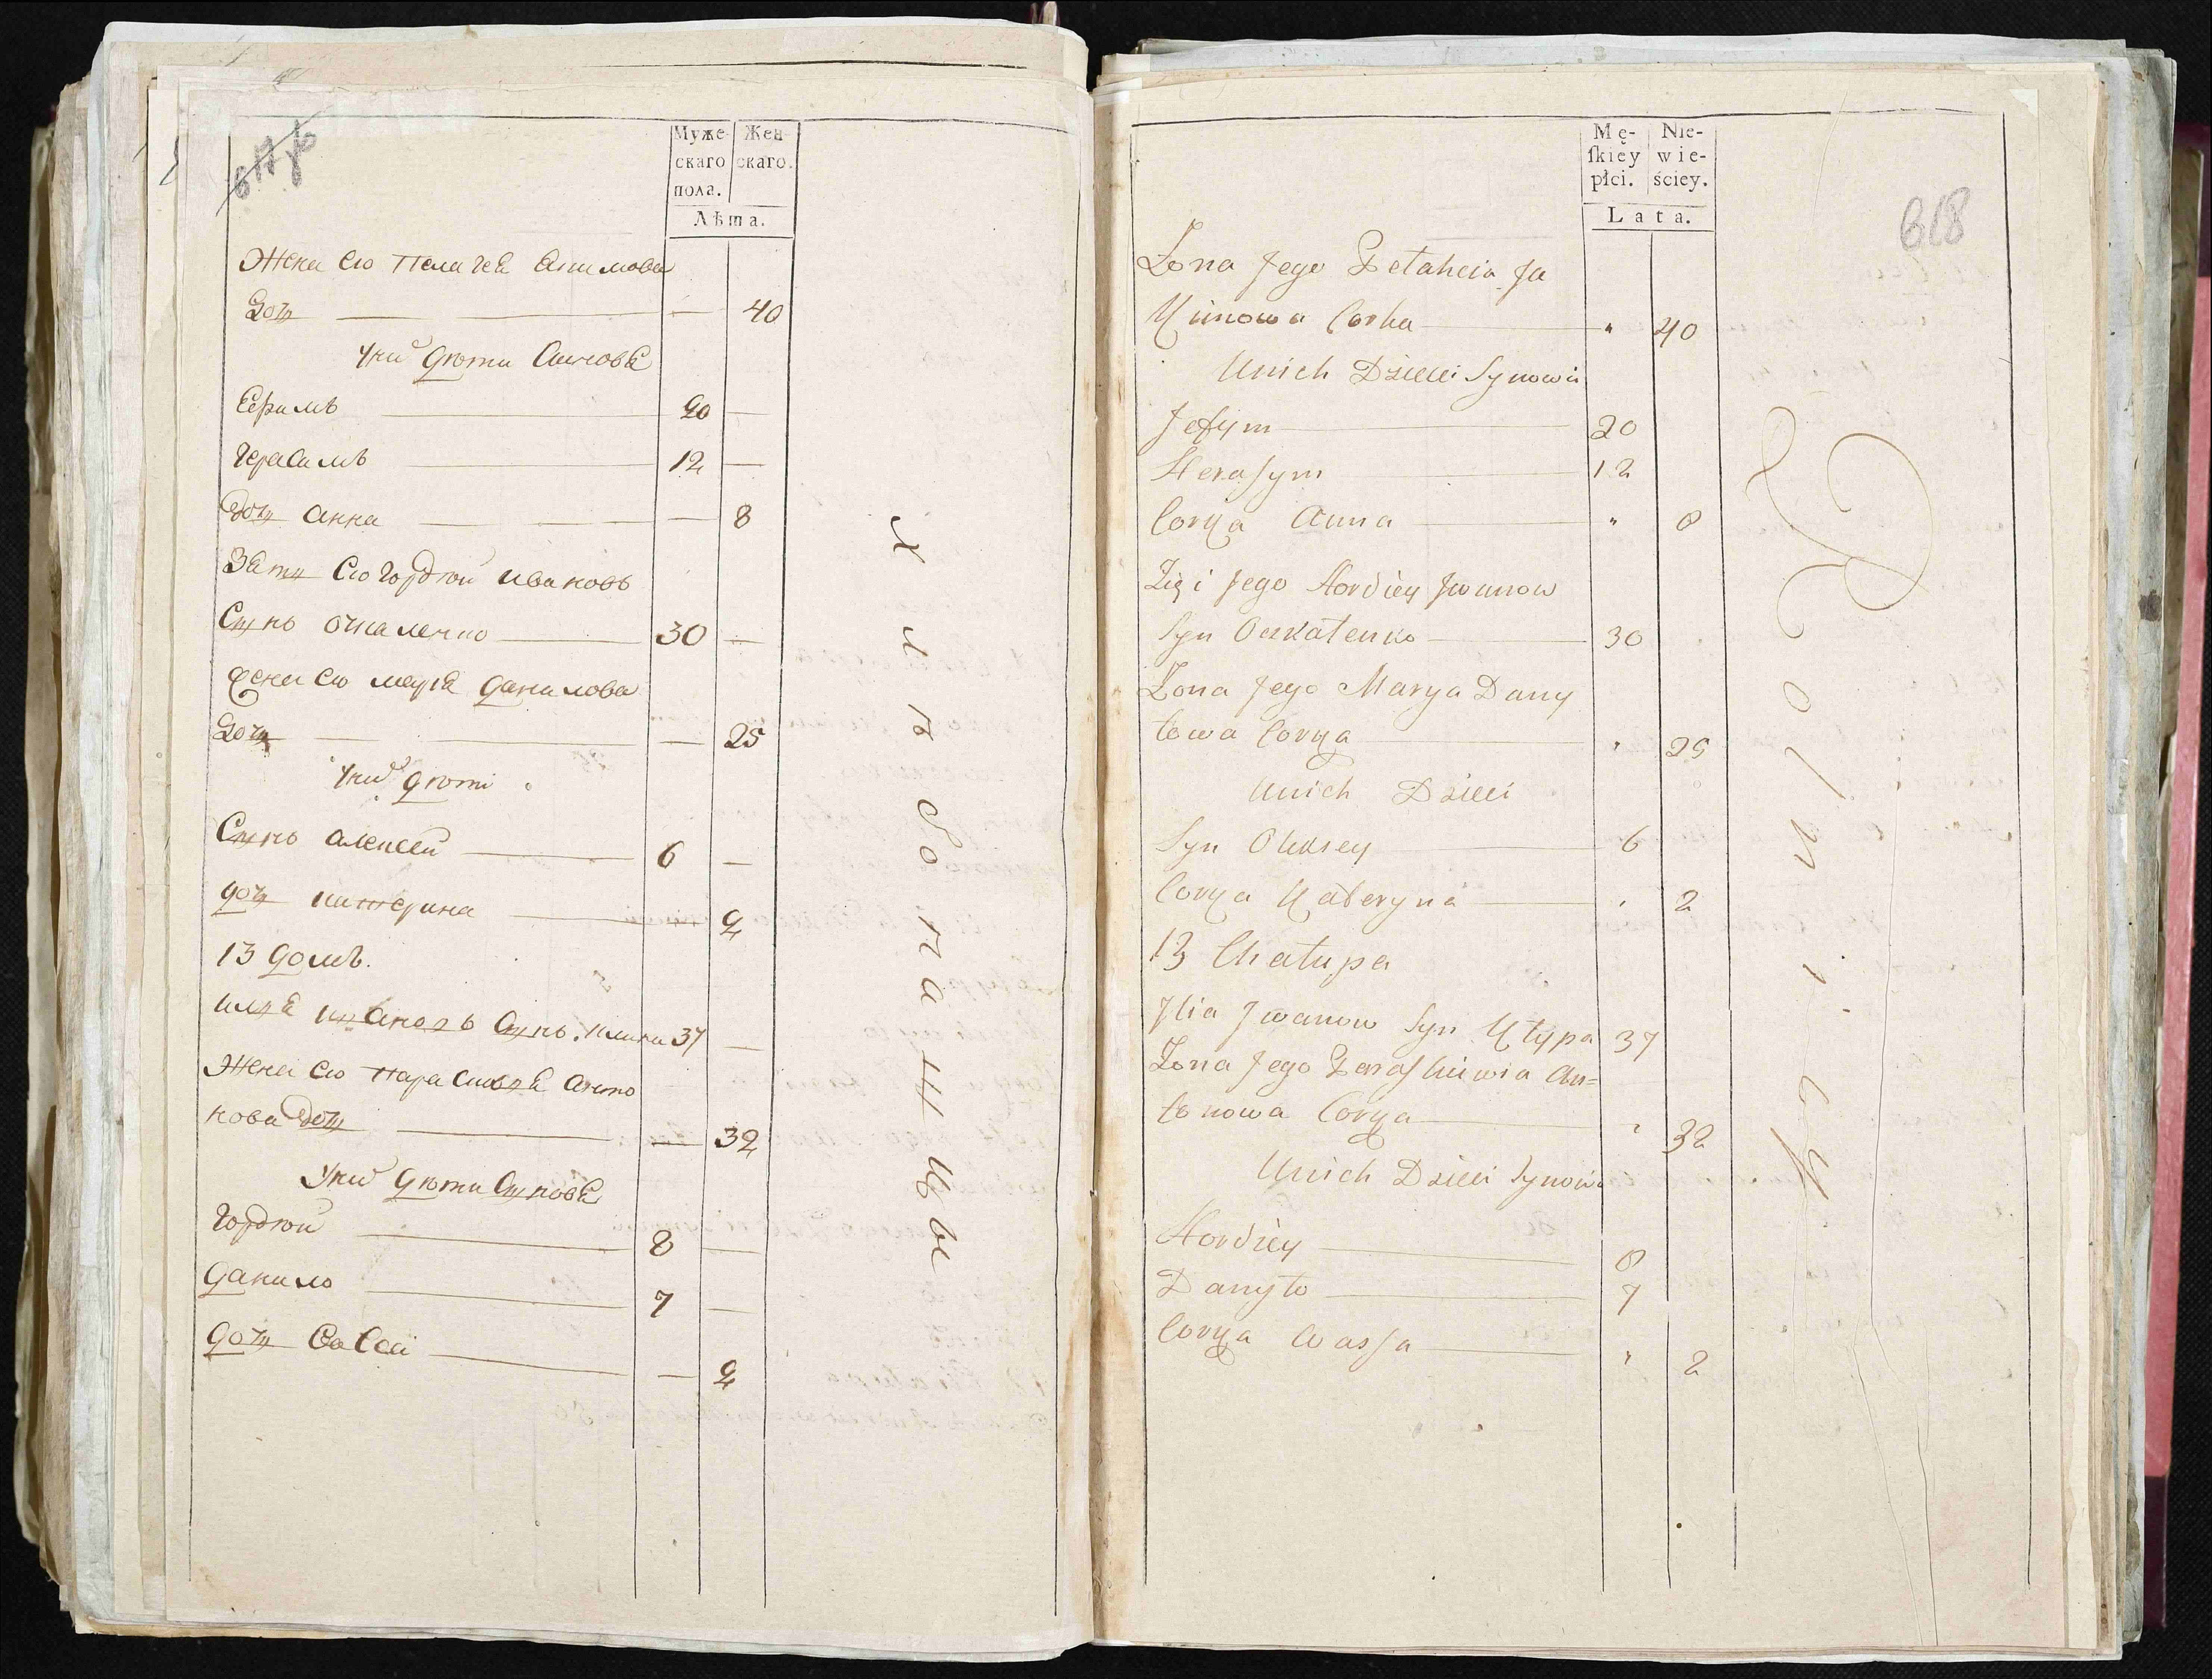 Муже-
скаго
пола.
Жен-
скаго.
Лѣта.
Жена Его Пелагеѧ Екимова
Дочь — 40
У них дѣти Сыновѧ
Ефимъ 20 —
Герасимъ 12 —
Дочь Анна — 8
Зѧть Его Гордѣй Ивановъ
Сынъ Очкаленко 30 —
Жена Его Марїѧ Данилова
Дочь — 25
У них дѣти
Сынъ Алексей 6 —
дочь Катерина — 2
13 домъ.
Илїѧ Ивановъ Сынъ Клипа 37 —
Жена Его Парасковїѧ Анто
нова Дочь — 32
У них дѣти Сыновѧ
Гордѣй 8 —
Данило 7 —
дочь Васса — 2
Хлѣбопашцы
618
Mę-
ſkiéy
płci.
Nie-
wie-
ściey.
Lata.
Żona Jego Pełaheia Ja
Kimowa Corka " 40
Unich Dzieci Synowia
Jefym 20
Herasym 12
Corka Anna " 8
Zięć Jego Hordiey Jwanow
Syn Oczkałenko 30
Żona Jego Marya Dany
łowa Corka " 25
Unich Dzieci
Syn Olexsey 6
Corka Kateryna " 2
13 Chałupa
Jlia Jwanow Syn Kłypa 37
Żona Jego Paraskiewia An=
tonowa Corka " 32
Unich Dzieci Synowia
Hordiey 8
Danyło 7
Corka Wassa " 2
Rolnicy